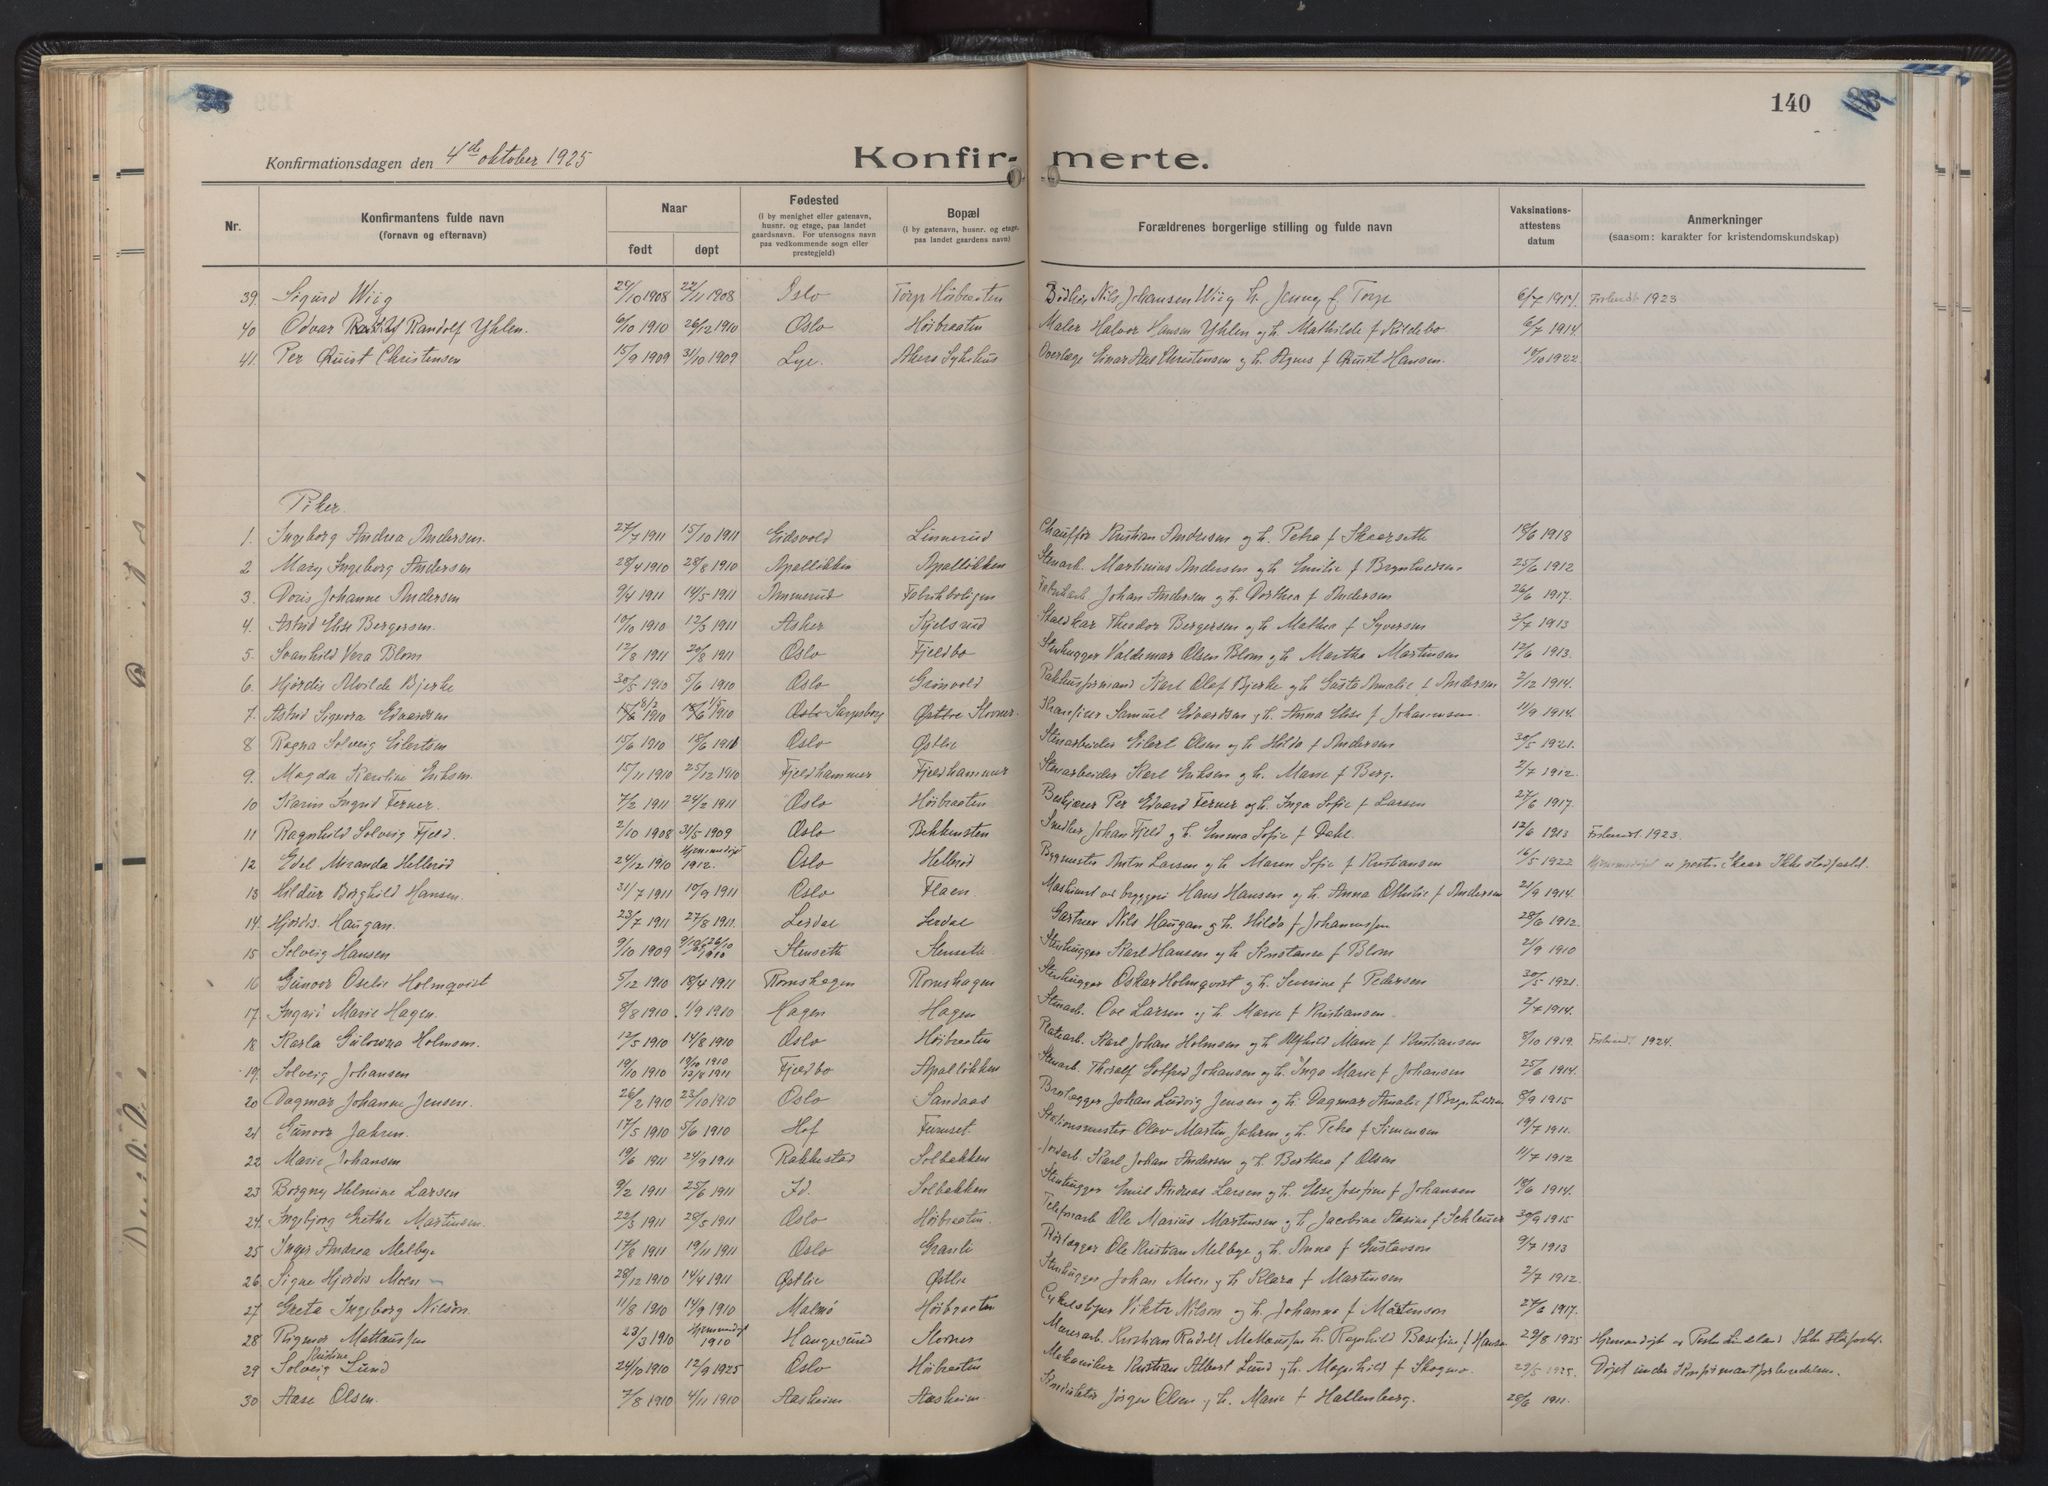 140
Konfirmationsdagen den 4de oktober 1925
Konfir- merte.
Nr. | Konfirmantens fulde navn (fornavn og efternavn) | Naar født | døpt | Fødested (i by menighet eller gatenavn, husnr. og etage, paa landet gaardsnavn. For utensogns navn paa vedkommende sogn eller prestegjeld) | Bopæl (i by gatenavn, husnr. og etage, paa landet gaardens navn) | Forældrenes borgerlige stilling og fulde navn | Vaksinations-attestens datum | Anmerkninger (saasom: karakter for kristendomskundskap)
39. Sigurd Wiig 24/10 1908 22/11 1908 Oslo Torp Høibraaten Bødker Nils Johansen Wiig h. Jenny f. Torp 6/7 1914. Forhendt 1923
40 Odvar Randolf Yhlen. 6/10 1910 26/12 1910 Oslo Høibraaten Maler Halvor Hansen Yhlen og h. Mathilde f Kildebo 6/7 1914.
41. Per Quist Christensen 15/9 1909 31/10 1909 Lye. Akers Sykehus Overlæge Einar Aas Christensen og h. Agnes f Quist Hansen. 1922.
Piker.
1. Ingeborg Andrea Andersen. 27/7 1911 15/10 1911 Eidsvold Linnerud Chauffør Kristian Andersen og h. Petra f Skaarseth 18/6 1918
2 Mary Ingeborg Andersen 28/4 1910 28/8 1910 Apalløkken Apalløkken Stenarb. Martinius Andersen og h Emilie f Brynhildsen. 25/6 1912
3. Doris Johanne Andersen 9/4 1911 14/5 1911 Ammerud Fabrikboligen Fabrikarb Johan Andersen og h. Dorthea f Andersen 26/6 1917.
4. Astrid Else Bergersen. 10/10 1910 12/3 1911 Asker Kjelsrud Staldkar Theodor Bergersen og h. Mathea f Syversen 3/7 1913
5. Svanhild Vera Blom 12/8 1911 20/8 1911 Oslo Fjeldbo Stenhugger Valdemar Olsen Blom og h Martha Martinsen 12/6 1913.
6. Hjørdis Alvilde Bjerke 30/5 1910 5/6 1910 Oslo Grønvold Pakhusformand Karl Olaf Bjerke og h Gusta Amalie f Andersen 2/12 1914.
7. Astrid Signora Edvardsen 15/6 8/2 1910 18/6 1/5 1910 Oslo Sarpsborg Østbre Stovner. Samuel Edvardsen og h. Anna Elise f Johannesen. 11/9 1914.
8 Ragna Solveig Eilertsen 15/6 1910 18/6 1911 Oslo Østlie Stenarbeider Eilert Olsen og h Hilda f Andersen 30/5 1921.
9. Magda Karoline Eriksen. 15/11 1910 25/12 1910 Fjeldhammer Fjeldhammer Stenarbeider Karl Eriksen og h. Marie f Berg. 2/7 1912.
10 Karin Ingrid Ferner. 7/2 1911 24/2 1911 Oslo Høibraaten Per Edvard Ferner og h. Inga Sofie f Larsen 27/6 1917.
11 Ragnhild Solveig Fjeld. 2/10 1908 31/5 1909 Oslo Bekkensten Snedker Johan Fjeld og h. Emma Sofie f Dahl. 12/6 1913 Forhendt 1923.
12 Edel Miranda Hellerød 24/12 1910 Hjemmedøpt 1912. Oslo Hellerød Bygmester Anton Larsen og h. Maren Sofie f Kristiansen 16/5 1922 Hjemmedøpt av pastor Skaar Ikke stadfæstet.
13 Hildur Borghild Hansen. 31/7 1911 10/9 1911 Oslo Flaen Maskinist ved bryggeri Hans Hansen og h. Anna Othilie f Andersen 21/9 1914.
14. Hjørdis Haugan. 23/7 1911 27/8 1911. Lerdal Lerdal Gartner Nils Haugan og h. Hilda f Johannessen 28/6 1912.
15 Solveig Hansen 9/10 1909 26/10 1910 Stenseth Stenseth Stenhugger Karl Hansen og h Konstanse f Blom 2/9 1910
16 Gunvor Oselie Holmqvist 5/12 1910 18/4 1911 Romshagen Romshagen Stenhugger Oskar Holmqvist og h. Severine f Pedersen 30/5 1921.
17. Ingrid Marie Hagen. 8/8 1910 1/9 1910 Hagen Hagen Stenarb. Ove Larsen og h Marie f Kristiansen. 2/7 1914.
18 Karla Gulowna Holmsen. 12/5 1910 14/8 1910 Oslo Høibraaten Karl Johan Holmsen og h Alfhild Marie f Kristiansen 8/10 1919. Forhendt 1924.
19. Solveig Johansen 19/10 1910 19/10 1910 13/8 1911 Fjeldbo Apalløkken Stenarb. Thoralf Gotfred Johansen og h. Inga Marie f Johansen 25/6 1914.
20 Dagmar Johanne Jensen. 26/2 1910 23/10 1910 Oslo Sandaas Brolægger Johan Ludvig Jensen og h. Dagmar Amalie f Brynhildsen 8/9 1915
21 Gunvor Jahren. 17/5 1910 5/6 1910 Hof Furuset. Stationsmester Olav Martin Jahren og h. Petra f Simensen 19/7 1911.
22. Marie Johansen 19/6 1911 24/9 1911 Rakkestad Solbakken Jordarb. Karl Johan Andersen og h. Berthea f Olsen 11/7 1912
23 Borgny Helmine Larsen 9/2 1911 25/6 1911 Id. Solbakken Stenhugger Emil Andreas Larsen og h. Else Josefine f Johansen 18/6 1914.
24. Ingebjørg Grethe Martinsen. 22/3 1911 28/5 1911 Oslo Høibraaten. Telefonarb Ole Marius Martinsen og h Jacobine Aasine f Schleuer 30/9 1915
25 Inger Andrea Melbye 17/8 1911 19/11 1911 Oslo Granli Rørlægger Ole Kristian Melbye og h. Anna f Gustavson 9/7 1913
26. Signe Hjørdis Moen 28/12 1910 14/4 1911 Østlie Østlie Stenhugger Johan Moen og h Klara f Martinsen 2/7 1912.
27 Greta Ingeborg Nilson. 11/8 1910 14/9 1910 Malmø Høibraaten Viktor Nilson og h. Johanna f Mårtenson 27/6 1917.
28 Rigmor Mattausson 23/3 1910 Hjemmedøpt 1910 Haugesund Stovner Murerarb. Kristian Rudolf Mattausson h. Ragnhild Basefine f Hansen 29/8 1925 Hjemmedøpt av Pastor Lindland Ikke stadfæstet.
29 Solveig Kristine Lund 24/10 1910 12/9 1925 Oslo Høibraaten Mekaniker Kristian Albert Lund og h. Magnhild f Skogmo. 29/5 1925. Døpt under Konfirmantforberedelsen.
30 Aase Olsen. 7/8 1910 4/11 1910 Aasheim Aasheim. Jørgen Olsen og h. Marie f Hallenberg. 28/6 1911.